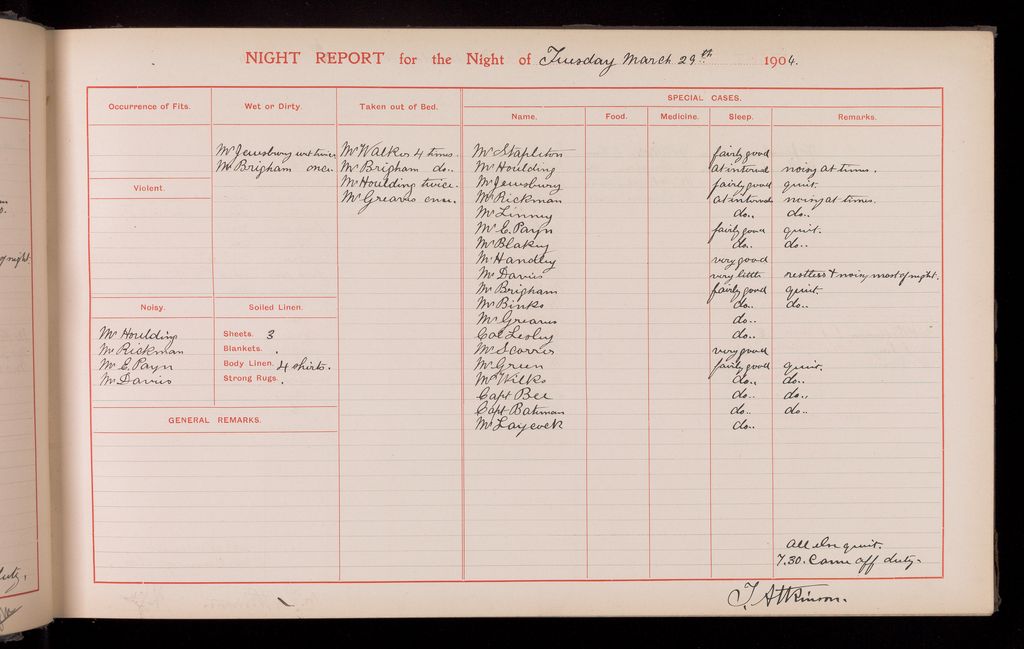 NIGHT REPORT for the Night of Tuesday March 29th 1904.
Occurrence of Fits.
Wet or Dirty.
Mr Jewsbury wet twice
Mr Brigham once.
Taken out of Bed.
Mr Walker 4 times.
Mr Brigham do..
Mr Houlding twice.
Mr Greaves once.
Violent.
Noisy.
Mr Houlding
Mr Rickman
Mr C. Payn
Mr Davies
Soiled Linen.
Sheets. 3
Blankets. .
Body Linen. 4 shirts.
Strong Rugs. .
GENERAL REMARKS.
SPECIAL CASES.
Name. Food. Medicine. Sleep. Remarks.
Mr Stapleton fairly good
Mr Houlding at intervals noisy at times.
Mr Jewsbury fairly good quiet.
Mr Rickman at intervals noisy at times.
Mr Linney do.. do..
Mr C. Payn fairly good quiet.
Mr Blakey do.. do..
Mr Handley very good
Mr Davies very little restless & noisy most of night.
Mr Brigham fairly good quiet.
Mr Binks do.. do..
Mr Greaves do..
Col Lesley do..
Mr Scorrer very good
Mr Green fairly good quiet.
Mr Wilks do.. do..
Capt Bee do.. do..
Capt Bateman do.. do..
Mr Laycock do..
All else quiet.
7.30. Came off duty.
T. Atkinson.
of night.
duty.